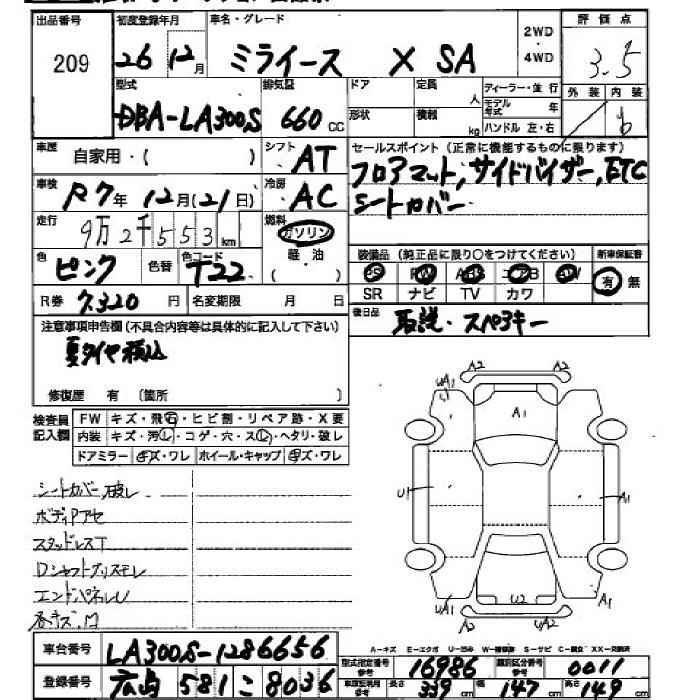 出品番号 初度登録年月 車名・グレード 2WD・4WD 評価点
209 26 12月 ミライース X SA 3.5
型式 排気量 ドア 定員 人 ディーラー・並行 外装 内装
DBA-LA300S 660cc 形状 積載 kg モデル年式 年 ハンドル 左・右 b
車歴 自家用・( ) シフト AT セールスポイント(正常に機能するものに限ります)
車検 R7年12月(21日) 冷房 AC フロアマット,サイドバイザー,ETC
走行 9万2千553km 燃料 ガソリン シートカバー
軽・油 ( )
色 ピンク 色替 色コード T22 装備品(純正品に限り○をつけてください) 新車保証書
PS PW ABS エアB AW 有 無
R券 7,320円 名変期限 月 日 SR ナビ TV カワ
注意事項申告欄(不具合内容等は具体的に記入して下さい) 後日品 取説・スペアキー
夏タイヤ積込
修復歴 有 〔箇所 〕
検査員記入欄 FW キズ・飛石・ヒビ割・リペア跡・X要
内装 キズ・汚レ・コゲ・穴・スレ・ヘタリ・破レ
ドアミラー キズ・ワレ ホイール・キャップ キズ・ワレ
A2 A2
UA1 A1 A1
U1 A1
UA1 U2 A1
A2 A2
シートカバー破レ
ボディアセ
スタッドレスT
Dシャフトグリスモレ
エンドパネルU
A-キズ E-エクボ U-凹み W-補修跡 S-サビ C-腐食 XX-交換済
車台番号 LA300S-1286656 型式指定番号 参考 16986 類別区分番号 参考 0011
登録番号 広島 581 こ 8036 車庫証明用参考 長さ 339cm 幅 147cm 高さ 149cm